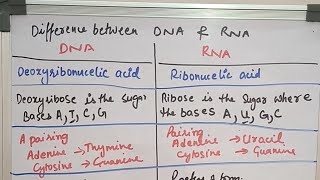 Difference between DNA & RNA
DNA
RNA
Deoxyribonucelic acid
Ribonucelic acid
Deoxyribose is the sugar
Bases A, I, C, G
Ribose is the sugar where
the bases A, U, G, C
A pairing
Adenine → Thymine
Cytosine → Guanine
Pairing
Adenine → Uracil
Cytosine → Guanine